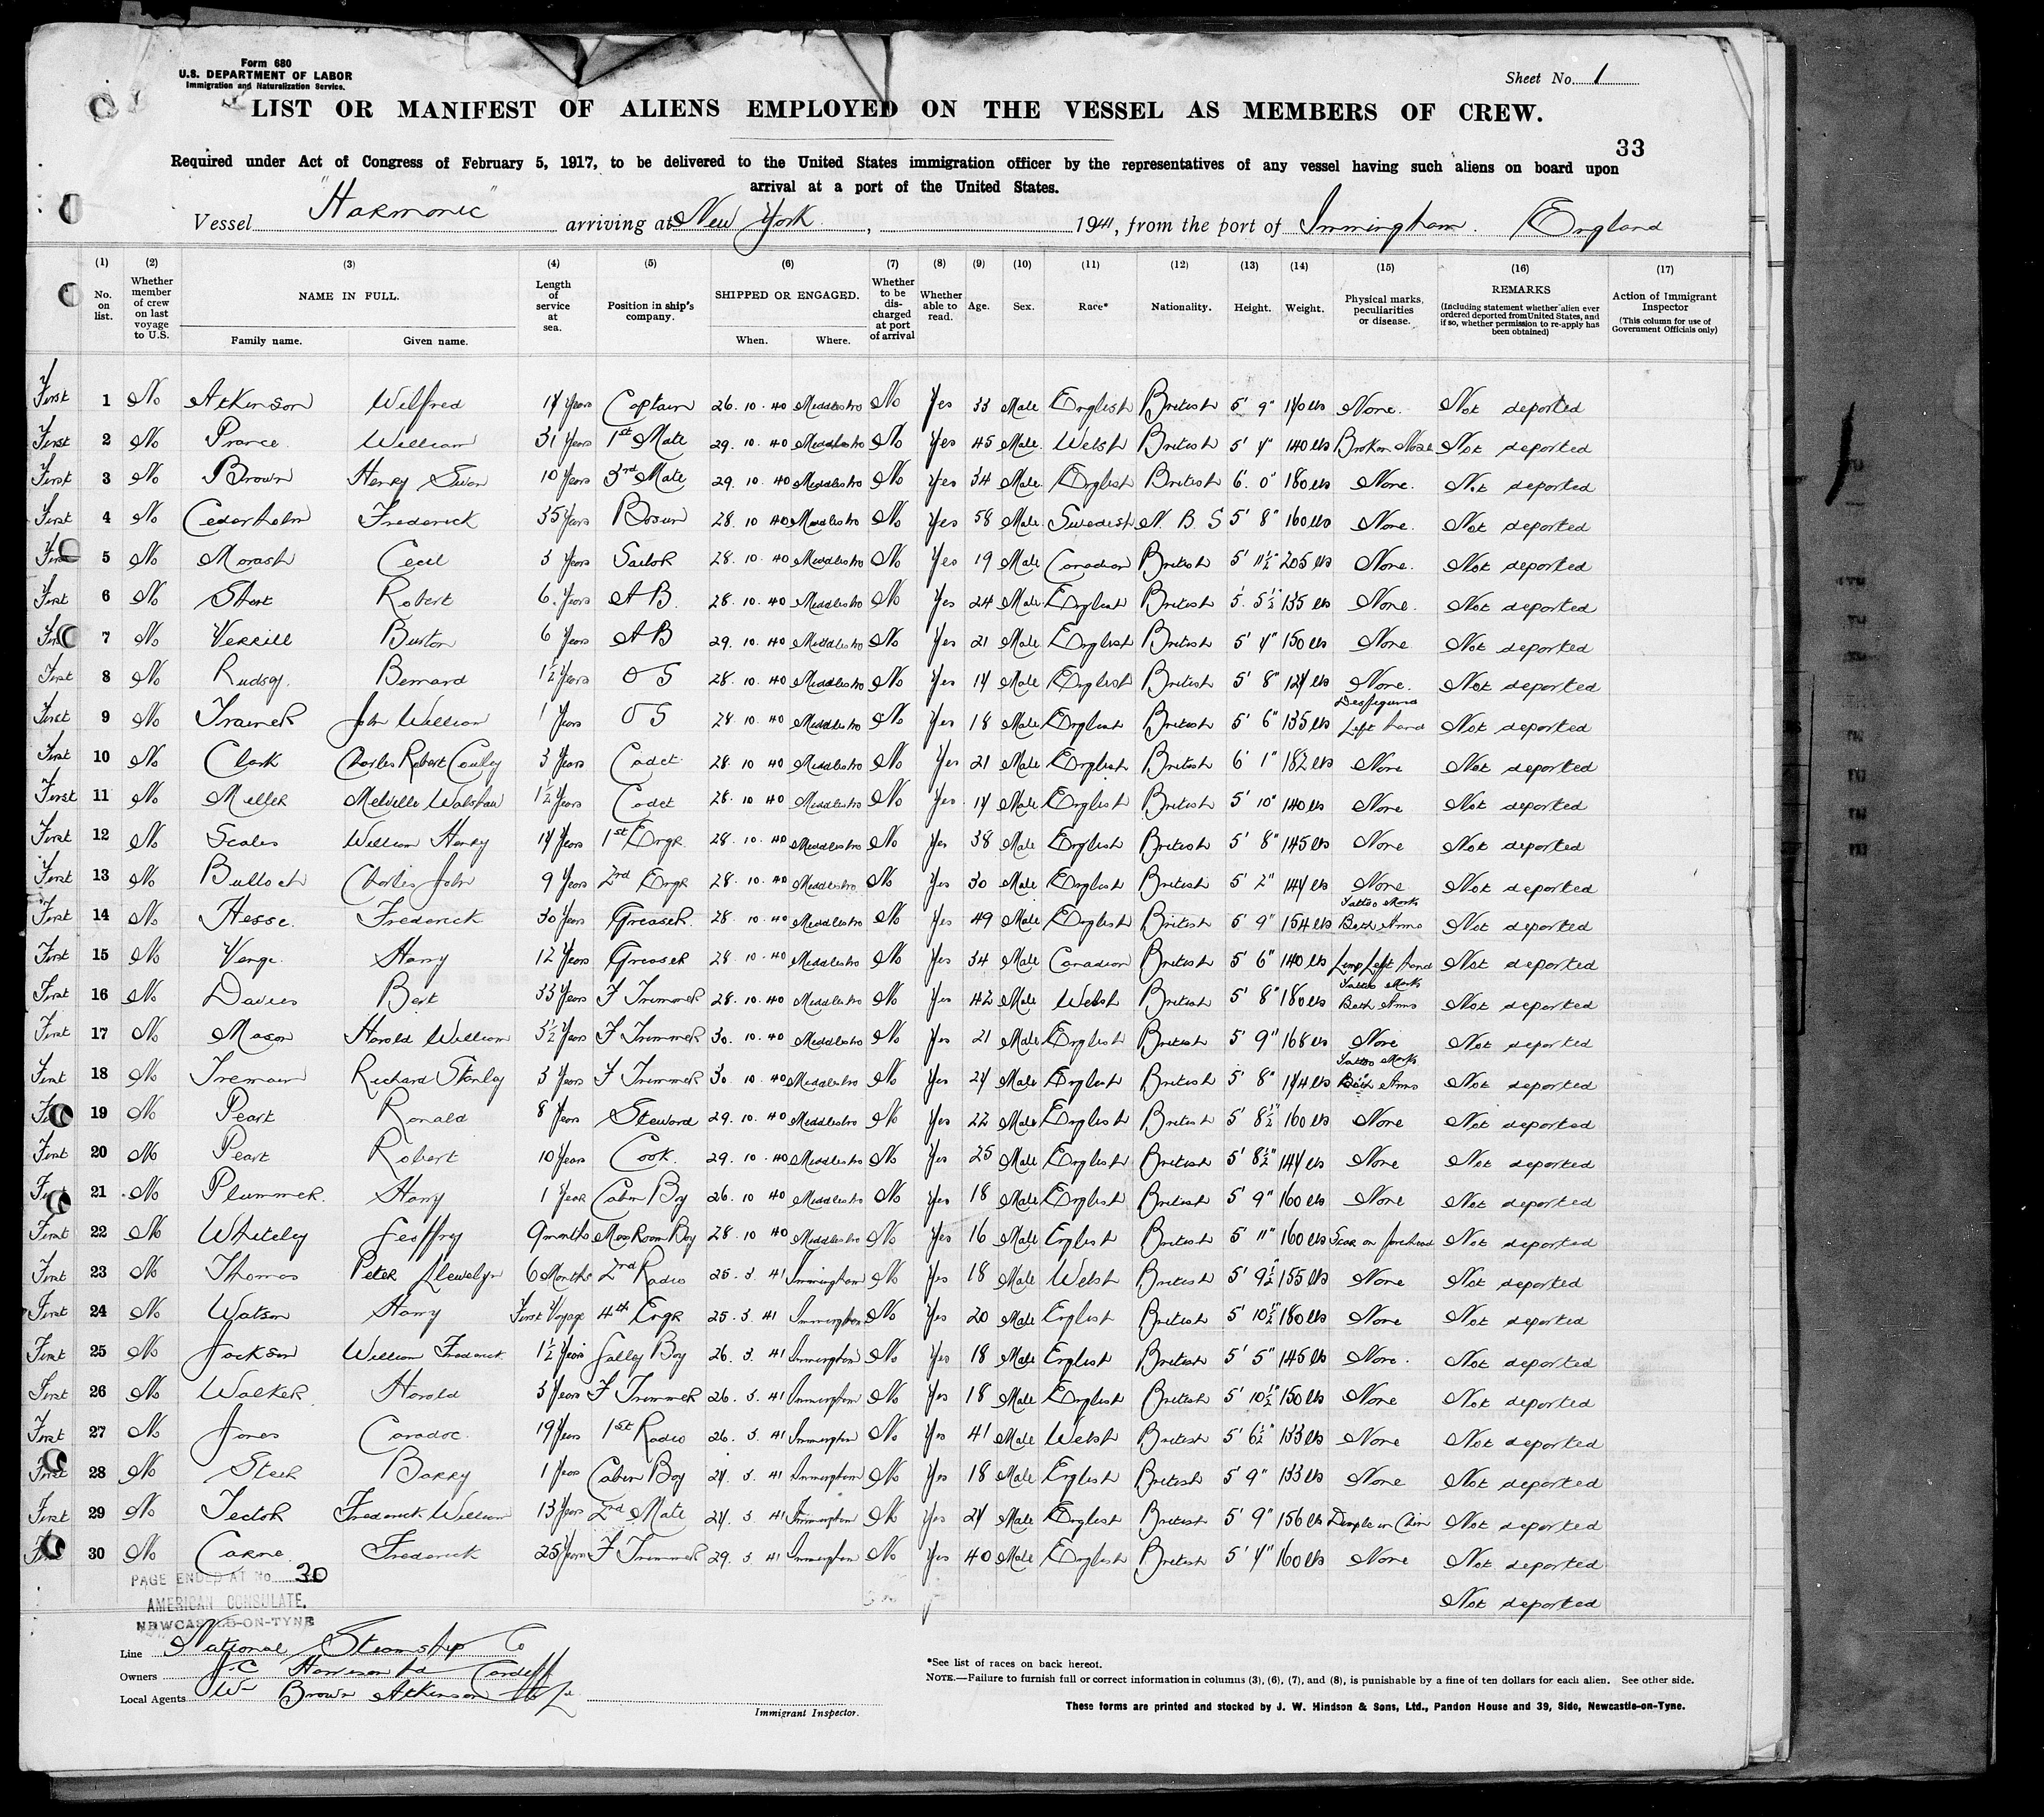 Form 680
U.S. DEPARTMENT OF LABOR
Immigration and Naturalization Service.
Sheet No. 1
LIST OR MANIFEST OF ALIENS EMPLOYED ON THE VESSEL AS MEMBERS OF CREW.
33
Required under Act of Congress of February 5, 1917, to be delivered to the United States immigration officer by the representatives of any vessel having such aliens on board upon
arrival at a port of the United States.
Vessel "Harmonic" arriving at New York, 1941, from the port of Immingham. England
(1) (2) (3) (4) (5) (6) (7) (8) (9) (10) (11) (12) (13) (14) (15) (16) (17)
No. on list. Whether member of crew on last voyage to U.S. NAME IN FULL. Family name. Given name. Length of service at sea. Position in ship's company. SHIPPED OR ENGAGED. When. Where. Whether to be discharged at port of arrival Whether able to read. Age. Sex. Race* Nationality. Height. Weight. Physical marks, peculiarities or disease. REMARKS (Including statement whether alien ever ordered deported from United States, and if so, whether permission to re-apply has been obtained) Action of Immigrant Inspector (This column for use of Government Officials only)
First 1 No Atkinson Wilfred 17 Years Captain 26. 10. 40 Middlesbro No Yes 33 Male English British 5' 9" 170 lbs None. Not deported
First 2 No Prance William 31 Years 1st Mate 29. 10. 40 Middlesbro No Yes 45 Male Welsh British 5' 7" 140 lbs Broken Nose Not deported
First 3 No Brown Henry Swan 10 Years 3rd Mate 29. 10. 40 Middlesbro No Yes 34 Male English British 6' 0" 180 lbs None. Not deported
First 4 No Cederholm Frederick 35 Years Bosun 28. 10 40 Middlesbro No Yes 58 Male Swedish N. B. S 5' 8" 160 lbs None. Not deported
First 5 No Morash Cecil 3 Years Sailor 28. 10. 40 Middlesbro No Yes 19 Male Canadian British 5' 11½" 205 lbs None. Not deported
First 6 No Short Robert 6. Years A B. 28. 10. 40 Middlesbro No Yes 24 Male English British 5' 5½" 135 lbs None. Not deported
First 7 No Verrill Burton 6 Years A B 29. 10. 40 Middlesbro No Yes 21 Male English British 5' 7" 150 lbs None Not deported
First 8 No Rudsay. Bernard 1½ Years O S 28. 10. 40 Middlesbro No Yes 17 Male English British 5' 8" 127 lbs None. Not deported
First 9 No Trainer John William 1 Years O S 28. 10. 40 Middlesbro No Yes 18 Male English British 5' 6" 135 lbs Left hand Not deported
First 10 No Clark Charles Robert 3 Years Cadet 28. 10 40 Middlesbro No Yes 21 Male English British 6' 1" 182 lbs None Not deported
First 11 No Miller Melville Walshaw 1½ Years Cadet 28. 10 40 Middlesbro No Yes 17 Male English British 5' 10" 140 lbs None Not deported
First 12 No Scales William Henry 17 Years 1st Engr. 28. 10. 40 Middlesbro No Yes 38 Male English British 5' 8" 145 lbs None Not deported
First 13 No Bulloch Charles John 9 Years 2nd Engr 28. 10. 40 Middlesbro No Yes 30 Male English British 5' 2" 147 lbs None Not deported
First 14 No Hesse. Frederick 30 Years Greaser 28. 10. 40 Middlesbro No Yes 49 Male English British 5' 9" 154 lbs Tattoo Marks Both Arms Not deported
First 15 No Venge Harry 12 Years Greaser 28. 10. 40 Middlesbro No Yes 34 Male Canadian British 5' 6" 140 lbs Lump Left hand Not deported
First 16 No Davies Bert 33 Years F Trimmer 28. 10. 40 Middlesbro No Yes 42 Male Welsh British 5' 8" 180 lbs Tattoo Marks Both Arms Not deported
First 17 No Mason Harold William 3½ Years F Trimmer 30. 10. 40 Middlesbro No Yes 21 Male English British 5' 9" 168 lbs None Not deported
First 18 No Tremain Richard Stanley 3 Years F Trimmer 30. 10. 40 Middlesbro No Yes 27 Male English British 5' 8" 174 lbs Tattoo Marks Both Arms Not deported
First 19 No Peart Ronald 8 Years Steward 29. 10. 40 Middlesbro No Yes 22 Male English British 5' 8½" 160 lbs None Not deported
First 20 No Peart Robert 10 Years Cook. 29. 10. 40 Middlesbro No Yes 25 Male English British 5' 8½" 147 lbs None Not deported
First 21 No Plummer. Harry 1 Year Cabin Boy 26. 10 40 Middlesbro No Yes 18 Male English British 5' 9" 160 lbs None Not deported
First 22 No Whiteley Geoffrey 9 months Mess Room Boy 28. 10 40 Middlesbro No Yes 16 Male English British 5' 11" 160 lbs Scar on forehead Not deported
First 23 No Thomas Peter Llewelyn 6 Months 2nd Radio 25. 3. 41 Immingham No Yes 18 Male Welsh British 5' 9½" 155 lbs None Not deported
First 24 No Watson Harry First Voyage 4th Engr 25. 3. 41 Immingham No Yes 20 Male English British 5' 10½" 180 lbs None Not deported
First 25 No Jackson William Frederick 1½ Years Galley Boy 26. 3. 41 Immingham No Yes 18 Male English British 5' 5" 145 lbs None. Not deported
First 26 No Walker Harold 3 Years F Trimmer 26. 3. 41 Immingham No Yes 18 Male English British 5' 10½" 150 lbs None Not deported
First 27 No Jones Caradoc. 19 Years 1st Radio 26. 3. 41 Immingham No Yes 41 Male Welsh British 5' 6½" 133 lbs None Not deported
First 28 No Steer Barry 1 Year Cabin Boy 27. 3. 41 Immingham No Yes 18 Male English British 5' 9" 133 lbs None Not deported
First 29 No Tector Frederick William 13 Years 2nd Mate 27. 3. 41 Immingham No Yes 27 Male English British 5' 9" 156 lbs Dimple in Chin Not deported
First 30 No Carne. Frederick 25 Years F Trimmer 29. 3. 41 Immingham No Yes 40 Male English British 5' 7" 160 lbs None Not deported
PAGE ENDED AT No. 30
AMERICAN CONSULATE,
NEWCASTLE-ON-TYNE
Not deported
Line National Steamship Co
Owners J.C Harrison Ltd Cardiff
Local Agents Wm Brown Atkinson
Immigrant Inspector.
*See list of races on back hereof.
NOTE.—Failure to furnish full or correct information in columns (3), (6), (7), and (8), is punishable by a fine of ten dollars for each alien. See other side.
These forms are printed and stocked by J. W. Hindson & Sons, Ltd., Pandon House and 39, Side, Newcastle-on-Tyne.